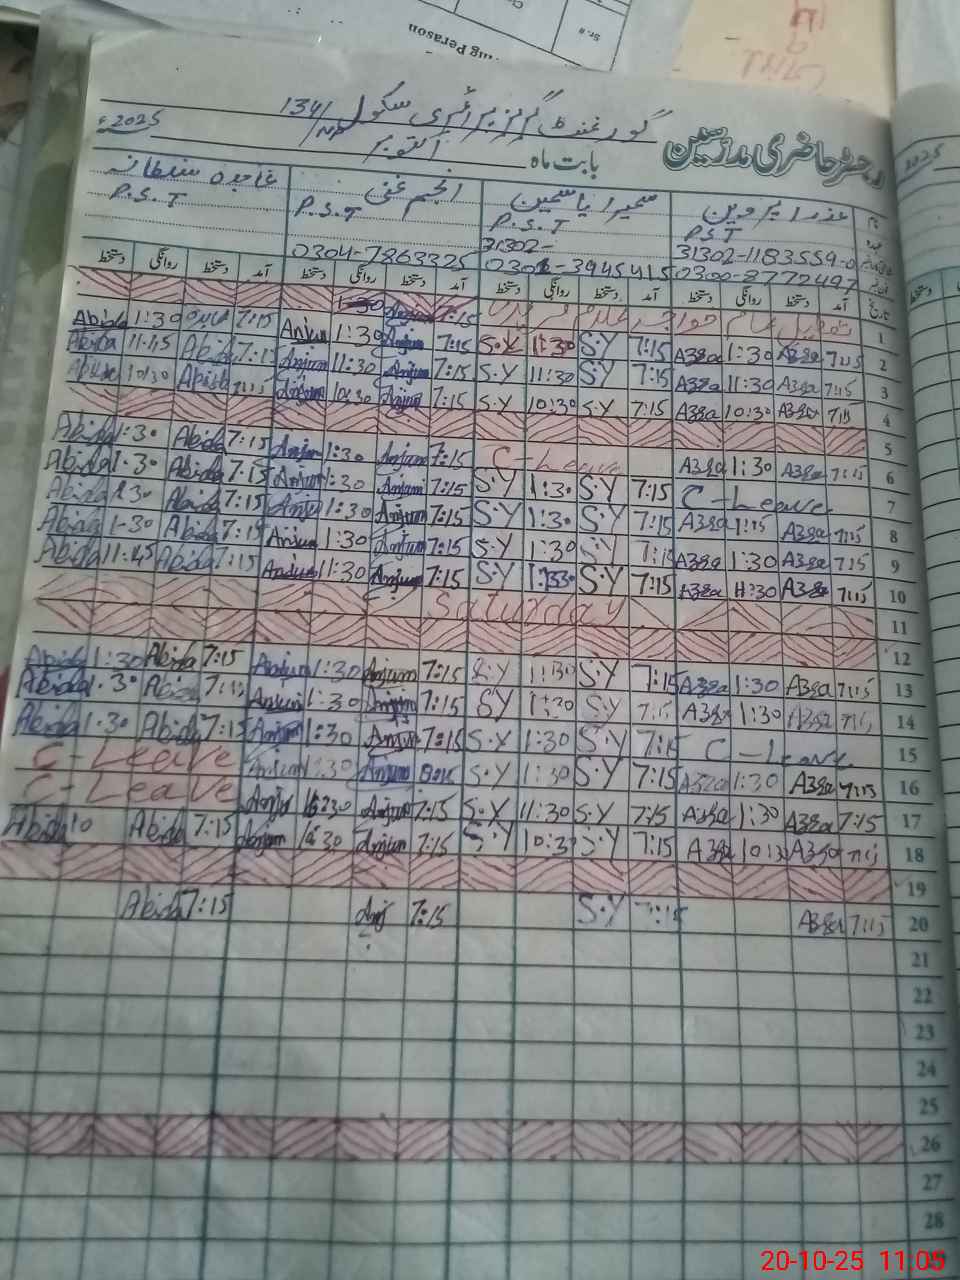 Sr. #
رجسٹر حاضری مدرسین
گورنمنٹ گرلز پرائمری سکول 134/
بابت ماہ اکتوبر 2025ء
2025
نام عذرا پروین سمیرا یاسمین انجم غنی عابدہ سلطانہ
عہدہ P.S.T P.S.T P.S.T P.S.T
31302-1183559-0 31302-
0300-8772497 0301-3945415 0304-7863325
تاریخ آمد دستخط روانگی دستخط آمد دستخط روانگی دستخط آمد دستخط روانگی دستخط آمد دستخط روانگی دستخط
1
Abida 1:30 7:15 Anjum 1:30 Anjum 7:15 S.Y 1:30 S.Y 7:15 Azra 1:30 Azra 7:15 2
Abida 11:45 Abida 7:15 Anjum 11:30 Anjum 7:15 S.Y 11:30 S.Y 7:15 Azra 11:30 Azra 7:15 3
Abida 10:30 Abida 7:15 Anjum 10:30 Anjum 7:15 S.Y 10:30 S.Y 7:15 Azra 10:30 Azra 7:15 4
5
Abida 1:30 Abida 7:15 Anjum 1:30 Anjum 7:15 C-Leave Azra 1:30 Azra 7:15 6
Abida 1:30 Abida 7:15 Anjum 1:30 Anjum 7:15 S.Y 1:30 S.Y 7:15 C-Leave 7
Abida 1:30 Abida 7:15 Anjum 1:30 Anjum 7:15 S.Y 1:30 S.Y 7:15 Azra 1:15 Azra 7:15 8
Abida 1-30 Abida 7:15 Anjum 1:30 Anjum 7:15 S.Y 1:30 S.Y 7:15 Azra 1:30 Azra 7:15 9
Abida 11:45 Abida 7:15 Anjum 11:30 Anjum 7:15 S.Y S.Y 7:15 Azra 11:30 Azra 7:15 10
Saturday 11
12
Abida 1:30 Abida 7:15 Anjum 1:30 Anjum 7:15 S.Y 1:30 S.Y 7:15 Azra 1:30 Azra 7:15 13
Abida 1:30 Abida 7:15 Anjum 1:30 Anjum 7:15 SY 1:30 S.Y 7:15 Azra 1:30 Azra 7:15 14
Abida 1:30 Abida 7:15 Anjum 1:30 Anjum 7:15 S.Y 1:30 S.Y 7:15 C-Leave 15
C-Leave Anjum 1:30 Anjum S.Y 1:30 S.Y 7:15 Azra 1:30 Azra 7:15 16
C-Leave Anjum Anjum 7:15 S.Y 11:30 S.Y 7:15 Azra 1:30 Azra 7:15 17
Abida 10 Abida 7:15 Anjum Anjum 7:15 S.Y 10:30 S.Y 7:15 Azra 10:30 Azra 7:15 18
19
Abida 7:15 Anj 7:15 S.Y 7:15 Azra 7:15 20
21
22
23
24
25
26
27
28
20-10-25 11:05